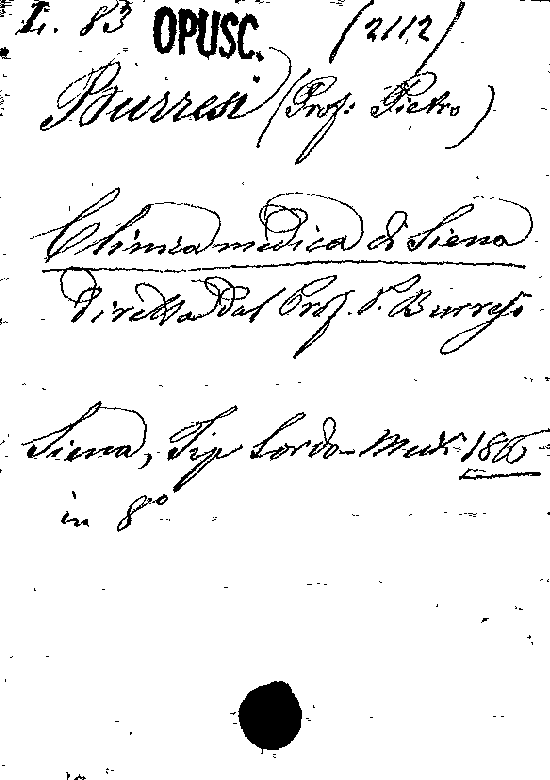 L. 83 OPUSC. (2112)
Burresi (Prof: Pietro)
Clinica medica di Siena
diretta dal Prof. P. Burresi
Siena, Tip Sordo-Muti
in 8º